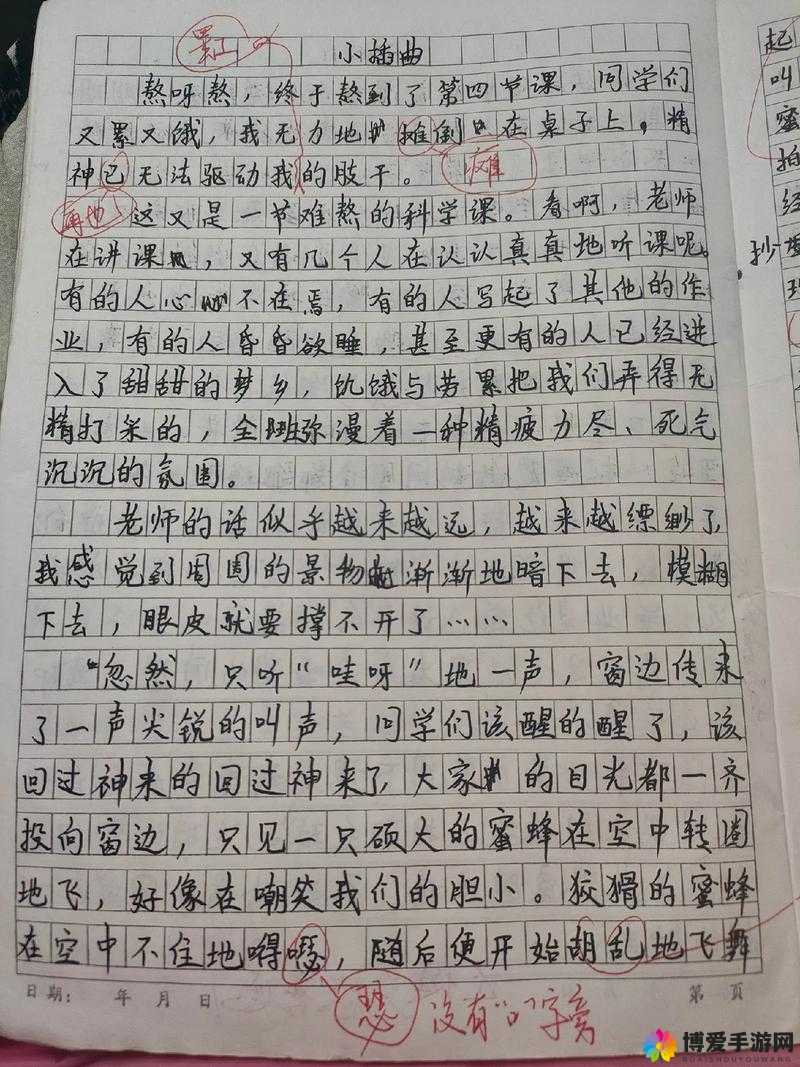 小插曲
熬呀熬，终于熬到了第四节课，同学们
又累又饿，我无力地摊倒在桌子上，精
瘫
神已无法驱动我的肢干。
再也
这又是一节难熬的科学课。看啊，老师
在讲课，又有几个人在认认真真地听课呢。
有的人心不在焉，有的人写起了其他的作
业，有的人昏昏欲睡，甚至更有的人已经进
入了甜甜的梦乡，饥饿与劳累把我们弄得无
精打采的，全班弥漫着一种精疲力尽、死气
沉沉的氛围。
老师的话似乎越来越远，越来越缥缈了，
我感觉到周围的景物渐渐地暗下去，模糊
下去，眼皮就要撑不开了……
“忽然，只听“哇呀”地一声，窗边传来
了一声尖锐的叫声，同学们该醒的醒了，该
回过神来的回过神来了，大家的目光都一齐
投向窗边，只见一只硕大的蜜蜂在空中转圈
地飞，好像在嘲笑我们的胆小。狡猾的蜜蜂
在空中不住地嘚噁，随后便开始胡乱地飞舞
日期： 年 月 日 第 页
瑟 没有“口”字旁
起
叫
蜜
拍
经
抄
博爱手游网
BOAISHOUYOUWANG